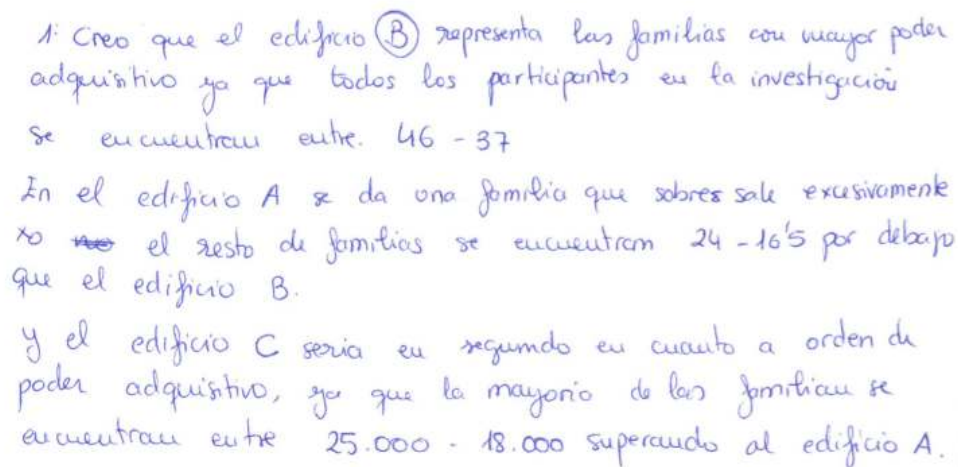 1: Creo que el edificio B representa las familias con mayor poder
adquisitivo ya que todos los participantes en la investigación
se encuentran entre. 46 - 37
En el edificio A se da una familia que sobres sale excesivamente
el resto de familias se encuentran 24 - 16'5 por debajo
que el edificio B.
y el edificio C seria en segundo en cuanto a orden de
poder adquisitivo, ya que la mayorio de las familian se
encuentran entre 25.000 - 18.000 superando al edificio A.